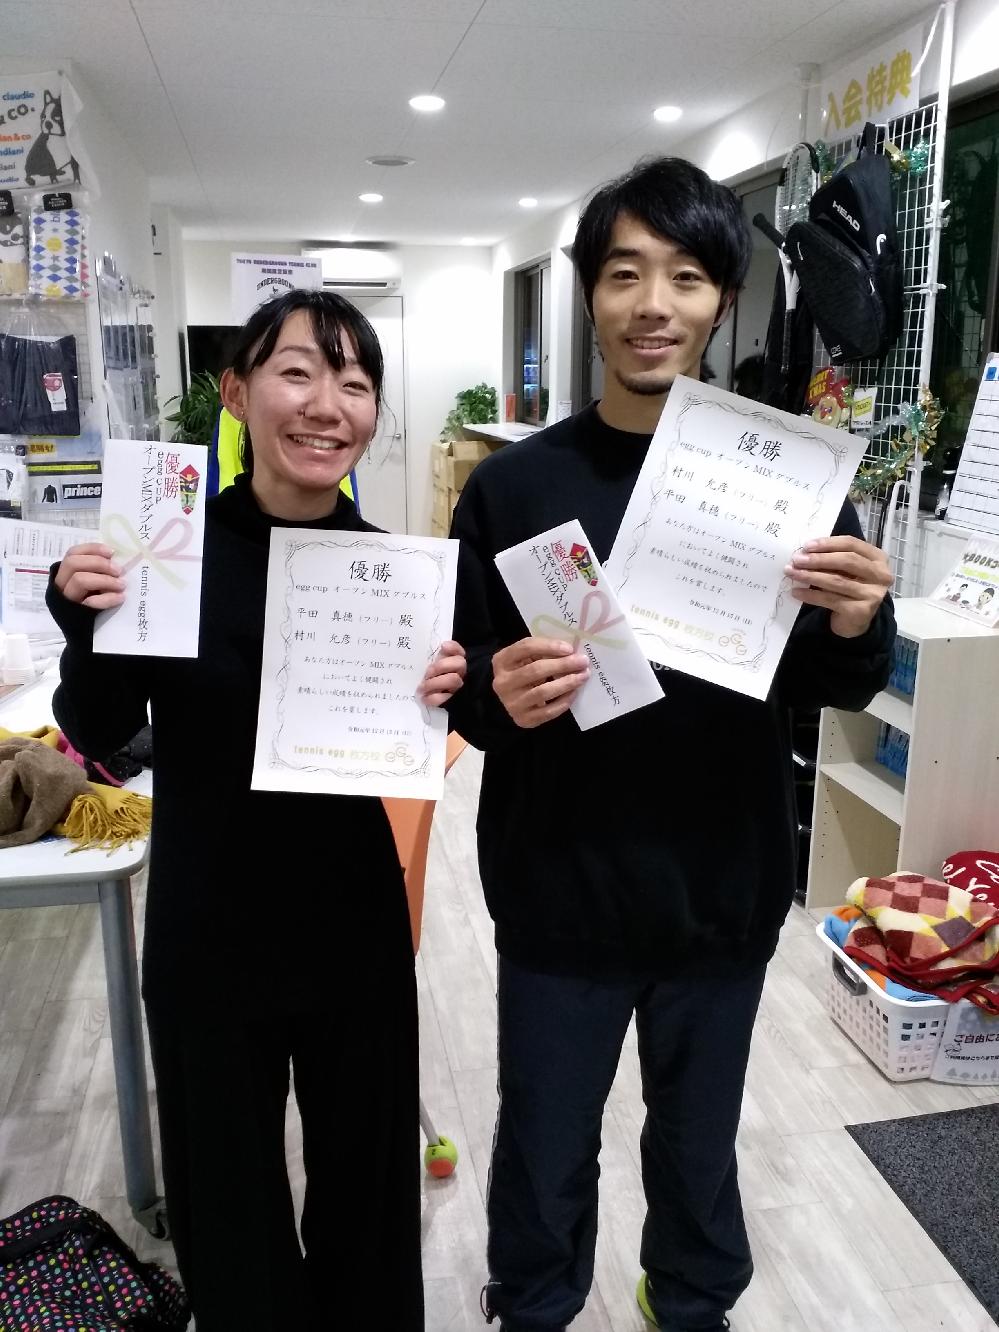 claudio
& co.
ian & co
ndiani
iani
claudio
TOKYO UNDERGROUND TENNIS CLUB
UNDERGROUND
入会特典
HEAD
prince
優勝
egg cup
オープンMIXダブルス
tennis egg枚方
優勝
egg cup オープン MIX ダブルス
平田 真穂（フリー）殿
村川 允彦（フリー）殿
あなた方はオープン MIX ダブルス
において よく健闘され
素晴らしい成績を収められましたので
これを賞します。
令和元年12月15日（日）
tennis egg 枚方校
egg
優勝
egg cup
オープンMIXダブルス
tennis egg枚方
優勝
egg cup オープン MIX ダブルス
村川 允彦（フリー）殿
平田 真穂（フリー）殿
あなた方はオープン MIX ダブルス
において よく健闘され
素晴らしい成績を収められましたので
これを賞します。
令和元年12月15日（日）
tennis egg 枚方校
egg
ご自由にお